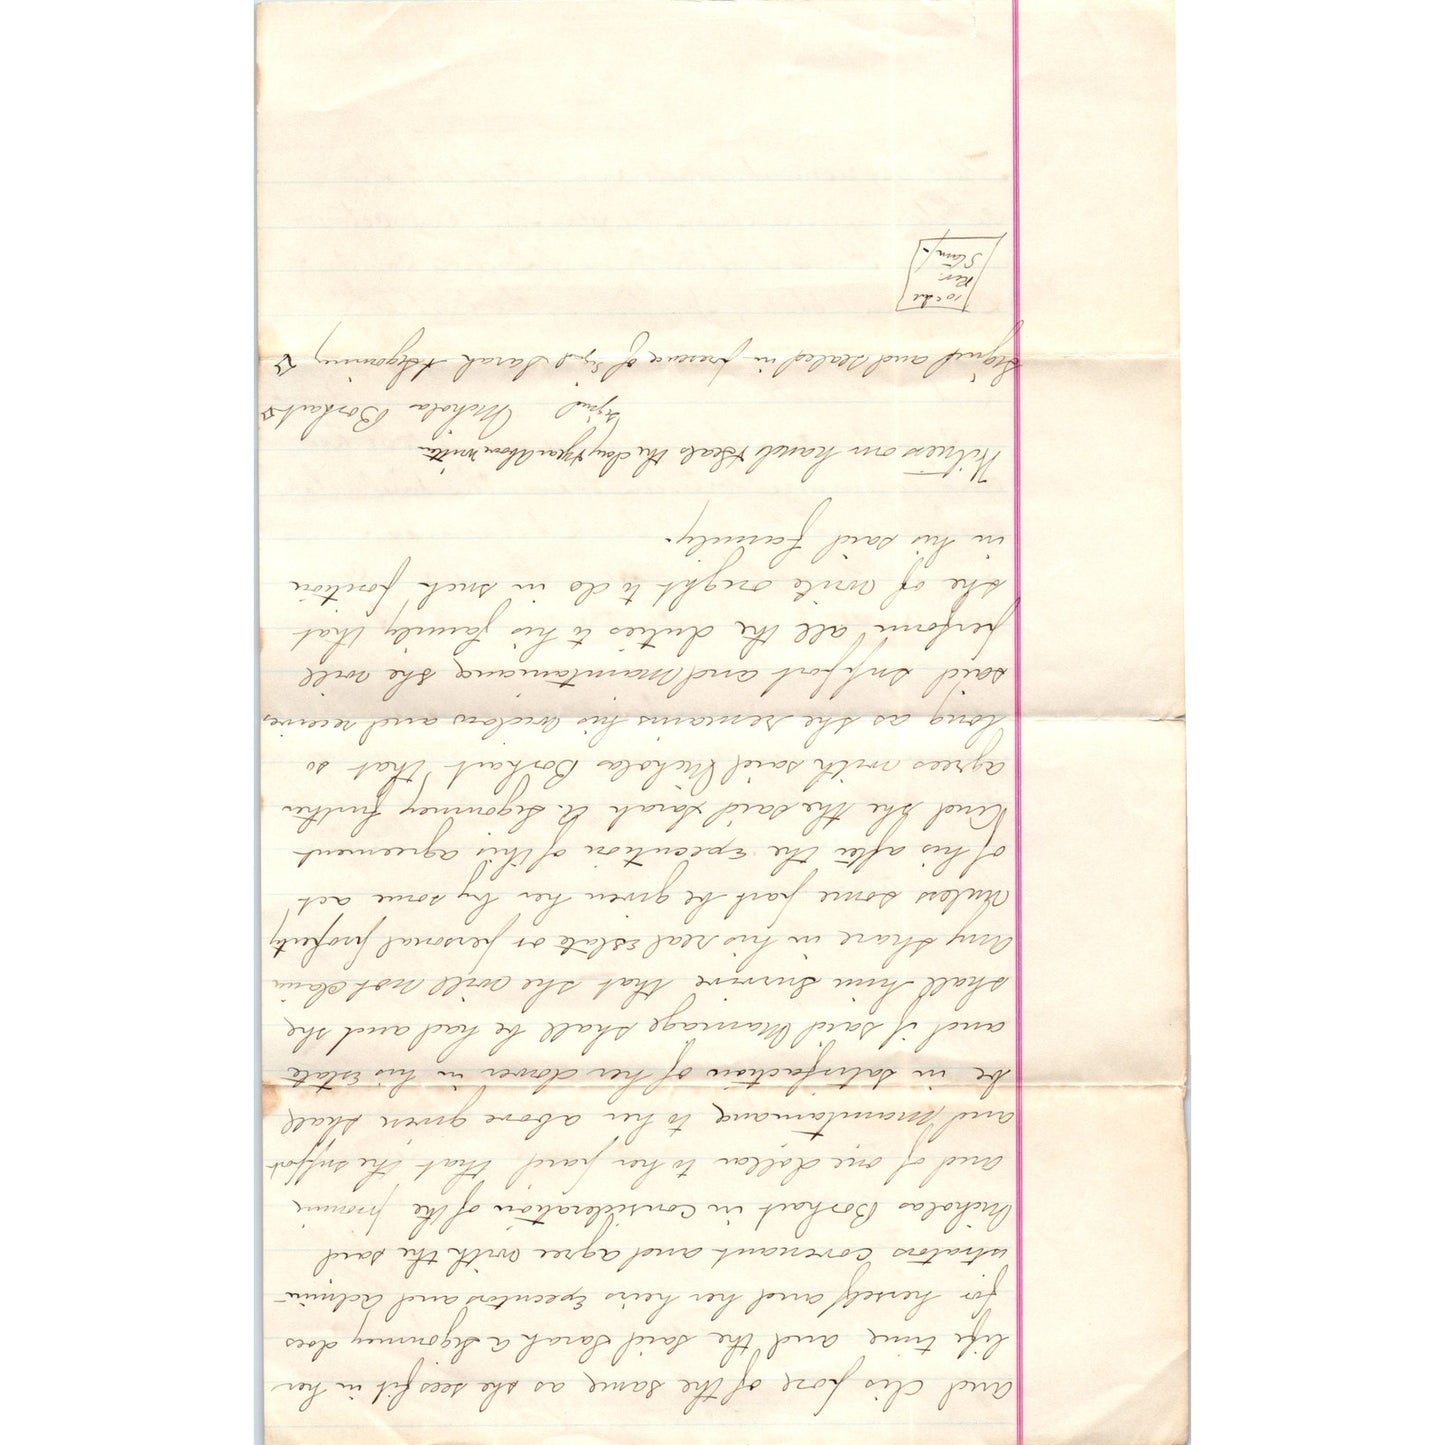 and dispose of the same as she sees fit in her
life time and the said Sarah A Sigourney does
for herself and her heirs Executors and Admin-
istrators covenant and agree with the said
Nicholas Borhait in consideration of the promise
and of one dollar to her paid that the support
and maintainance to her above given shall
be in satisfaction of her dower in his Estate
and if said Marriage shall be had and she
shall him survive that she will not claim
any share in his real Estate or personal property
unless some part be given her by some act
of his after the Execution of this agreement
And she the said Sarah A. Sigourney further
agrees with said Nichola Borhait that so
long as she remains his widow and receives
said support and maintainance she will
perform all the duties to his family that
she of wife ought to do in such position
in his said family.
Witness our hands & Seals the day & year above written
Signed Nichola Borhait
Signed and sealed in presence of Sigd Sarah A Sigourney
10 cts
Rev.
Stamp